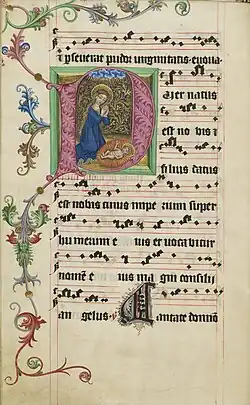 pudor virginitatis. euoua
Puer natus
est no bis i
filius datus
est nobis cuius impe rium super
humerum e ius et vocabitur
nomē e ius ma gni consilij
an gelus. Cantate domino